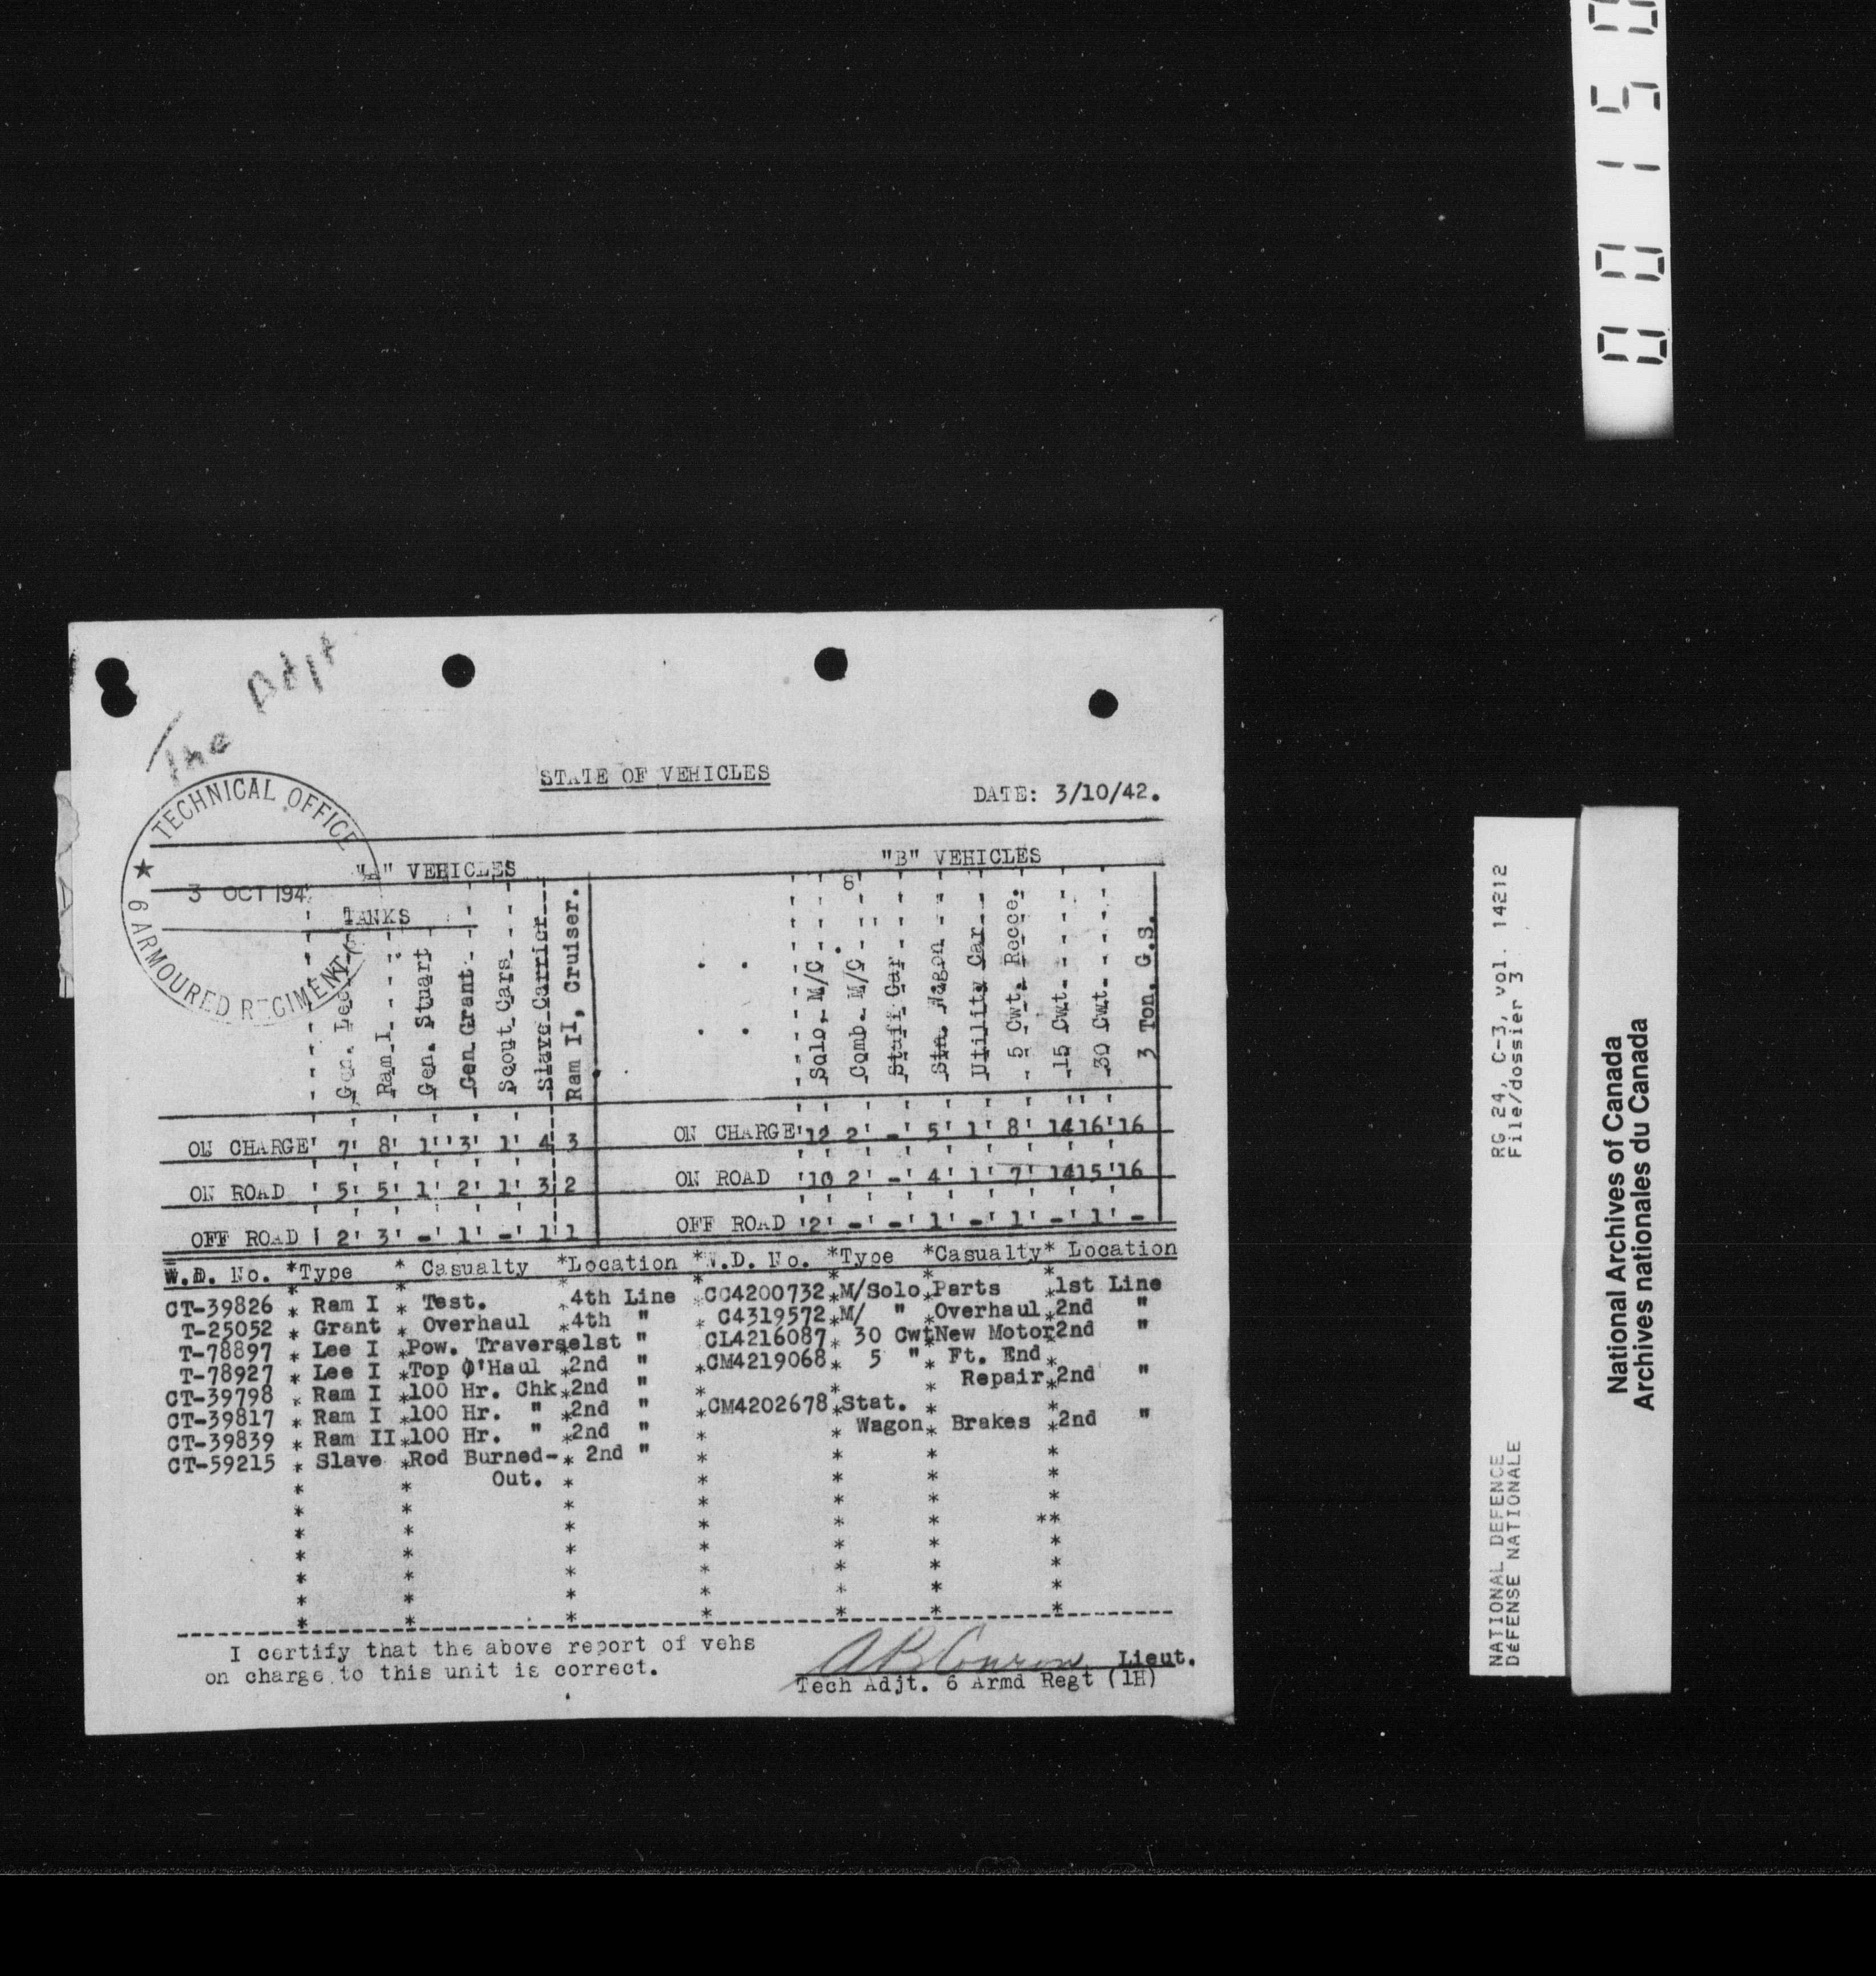 00150
The Adjt
STATE OF VEHICLES
DATE: 3/10/42.
TECHNICAL OFFICE
★ 6 ARMOURED REGIMENT
3 OCT 194
"A" VEHICLES
"B" VEHICLES
TANKS
Gen. Lee
Ram I
Gen. Stuart
Gen Grant
Scout Cars
Slave Carrier
Ram II, Cruiser.
Solo, M/C
Comb. M/C
Staff Car
Stn. Wagon
Utility Car
5 Cwt. Recce.
15 Cwt.
30 Cwt.
3 Ton. G.S.
ON CHARGE' 7' 8' 1'' 3' 1' 4 3 ON CHARGE'12 2' -' 5' 1' 8' 14 16'16
ON ROAD ' 5' 5' 1' 2' 1' 3 2 ON ROAD '10 2' -' 4' 1' 7' 14 15'16
OFF ROAD ' 2' 3' -' 1' -' 1' 1 OFF ROAD '2' -' -' 1' -' 1' -' 1' -
W.D. No. *Type * Casualty *Location *W.D. No. *Type *Casualty* Location
CT-39826 * Ram I * Test. *4th Line *CC4200732*M/Solo*Parts *1st Line
T-25052 * Grant * Overhaul *4th " * C4319572*M/ " *Overhaul*2nd "
T-78897 * Lee I *Pow. Traverse1st " CL4216087* 30 Cwt*New Motor2nd "
T-78927 * Lee I *Top O'Haul *2nd " *CM4219068* 5 " * Ft. End *
CT-39798 * Ram I *100 Hr. Chk*2nd " * * * Repair*2nd "
CT-39817 * Ram I *100 Hr. " *2nd " *CM4202678*Stat. * *
CT-39839 * Ram II*100 Hr. " *2nd " * * Wagon* Brakes *2nd "
CT-59215 * Slave *Rod Burned-* 2nd "
Out. *
I certify that the above report of vehs
on charge to this unit is correct.
Lieut.
Tech Adjt. 6 Armd Regt (1H)
NATIONAL DEFENCE RG 24, C-3, vol. 14212
DéFENSE NATIONALE File/dossier 3
National Archives of Canada
Archives nationales du Canada